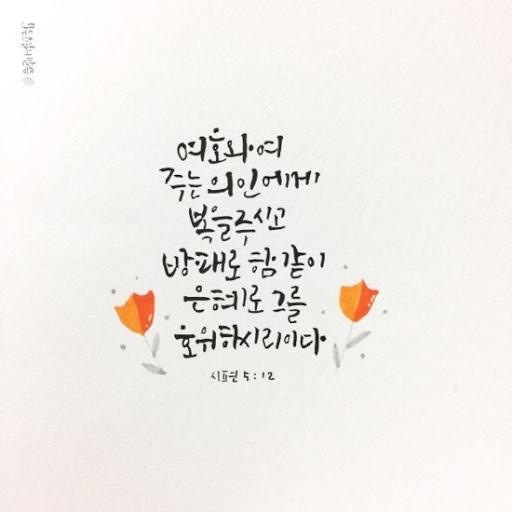 여호와여
주는 의인에게
복을 주시고
방패로 함 같이
은혜로 그를
호위하시리이다
시편 5:12